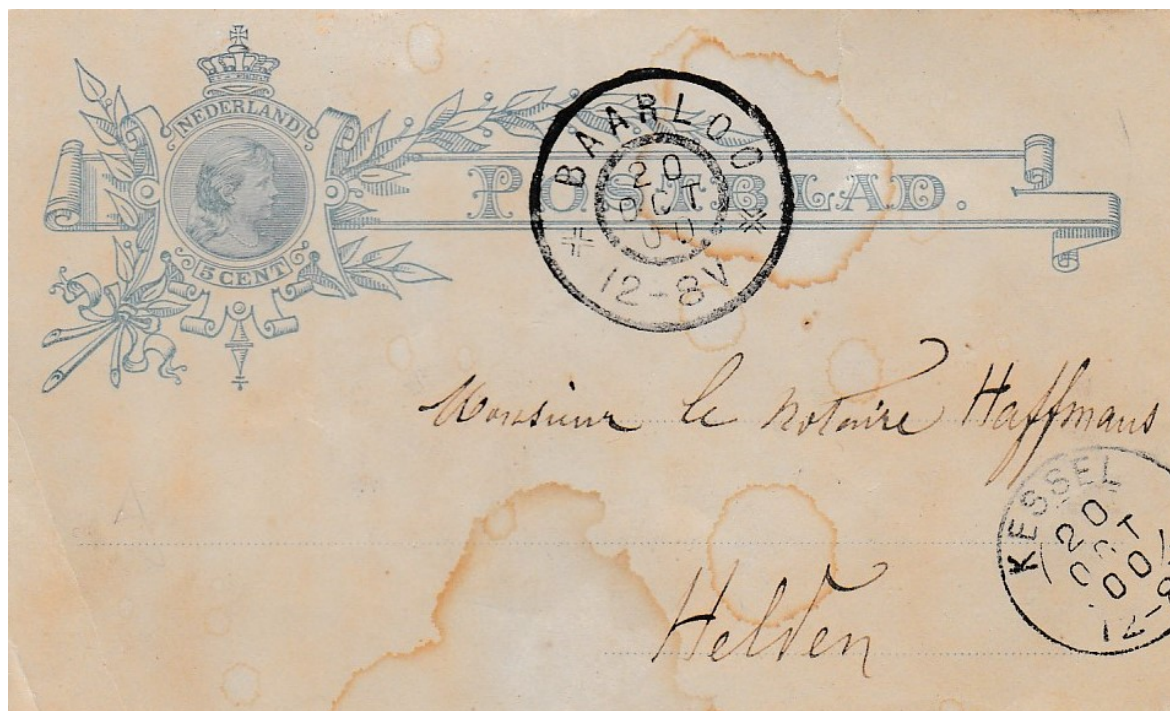 NEDERLAND
5 CENT
POSTBLAD.
BAARLOO
20
OCT
00
12-8V
Monsieur le notaire Haffmans
KESSEL
20
OCT
00
12-8
Helden